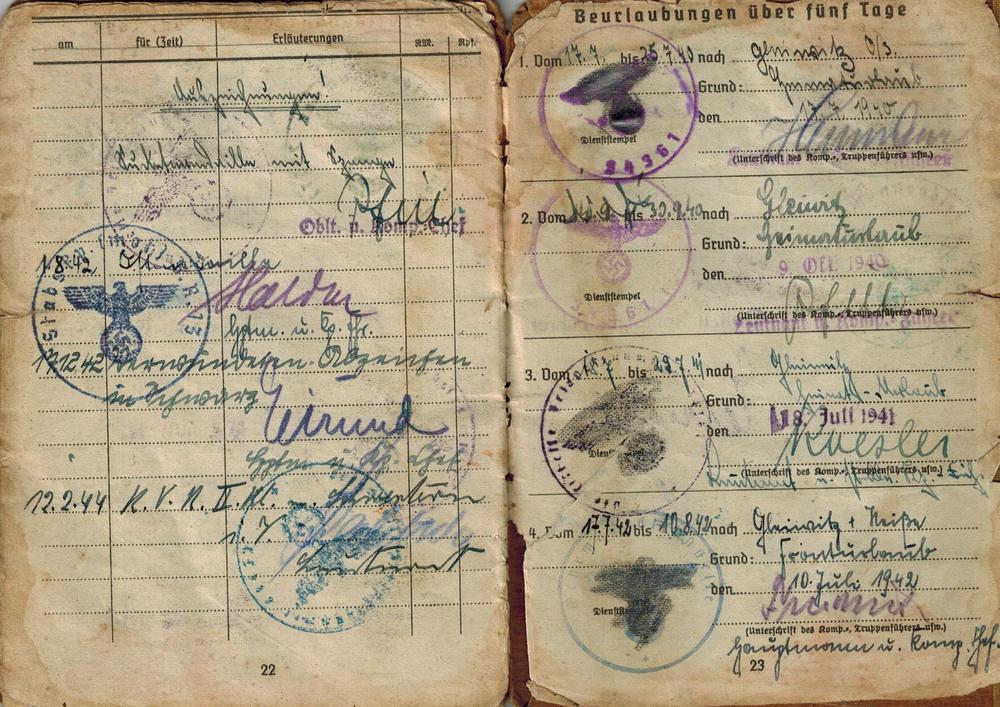 am für (Zeit) Erläuterungen RM. Rpf.
Auszeichnungen!
mit Spange
Oblt. u. Komp.-Chef
1.8.42 Ostmedaille
Hptm. u. Kp. Fhr.
17.12.42 Verwundeten-Abzeichen
in Schwarz
Hptm u. Kp. Chef
12.2.44 K. V. K. II. Kl. Schwertern
Leutnant
22
Beurlaubungen über fünf Tage
1. Vom 17.7. bis 25.7.40 nach Gleiwitz O/S.
Grund:
den 17.7.1940
Dienststempel
(Unterschrift des Komp.-, Truppenführers usw.)
34361
2. Vom bis 30.9.40 nach Gleiwitz
Grund: Heimaturlaub
den 9. Okt. 1940
Dienststempel
(Unterschrift des Komp.-, Truppenführers usw.)
Leutnant u. Komp.-Führer
3. Vom 18.7 bis 29.7.41 nach Gleiwitz
Grund: Heimat-Urlaub
den 18. Juli 1941
(Unterschrift des Komp.-, Truppenführers usw.)
Leutnant u.
4. Vom 17.7.42 bis 10.8.42 nach Gleiwitz + Neiße
Grund: Fronturlaub
den 10. Juli 1942
Dienststempel
(Unterschrift des Komp.-, Truppenführers usw.)
Hauptmann u. Komp. Chef.
23